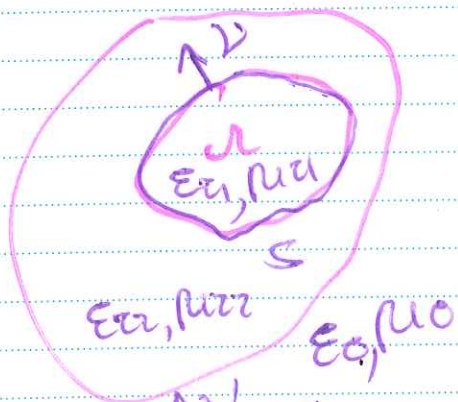 ν
Ω
εr1, μr1
S
εr2, μr2
ε0, μ0